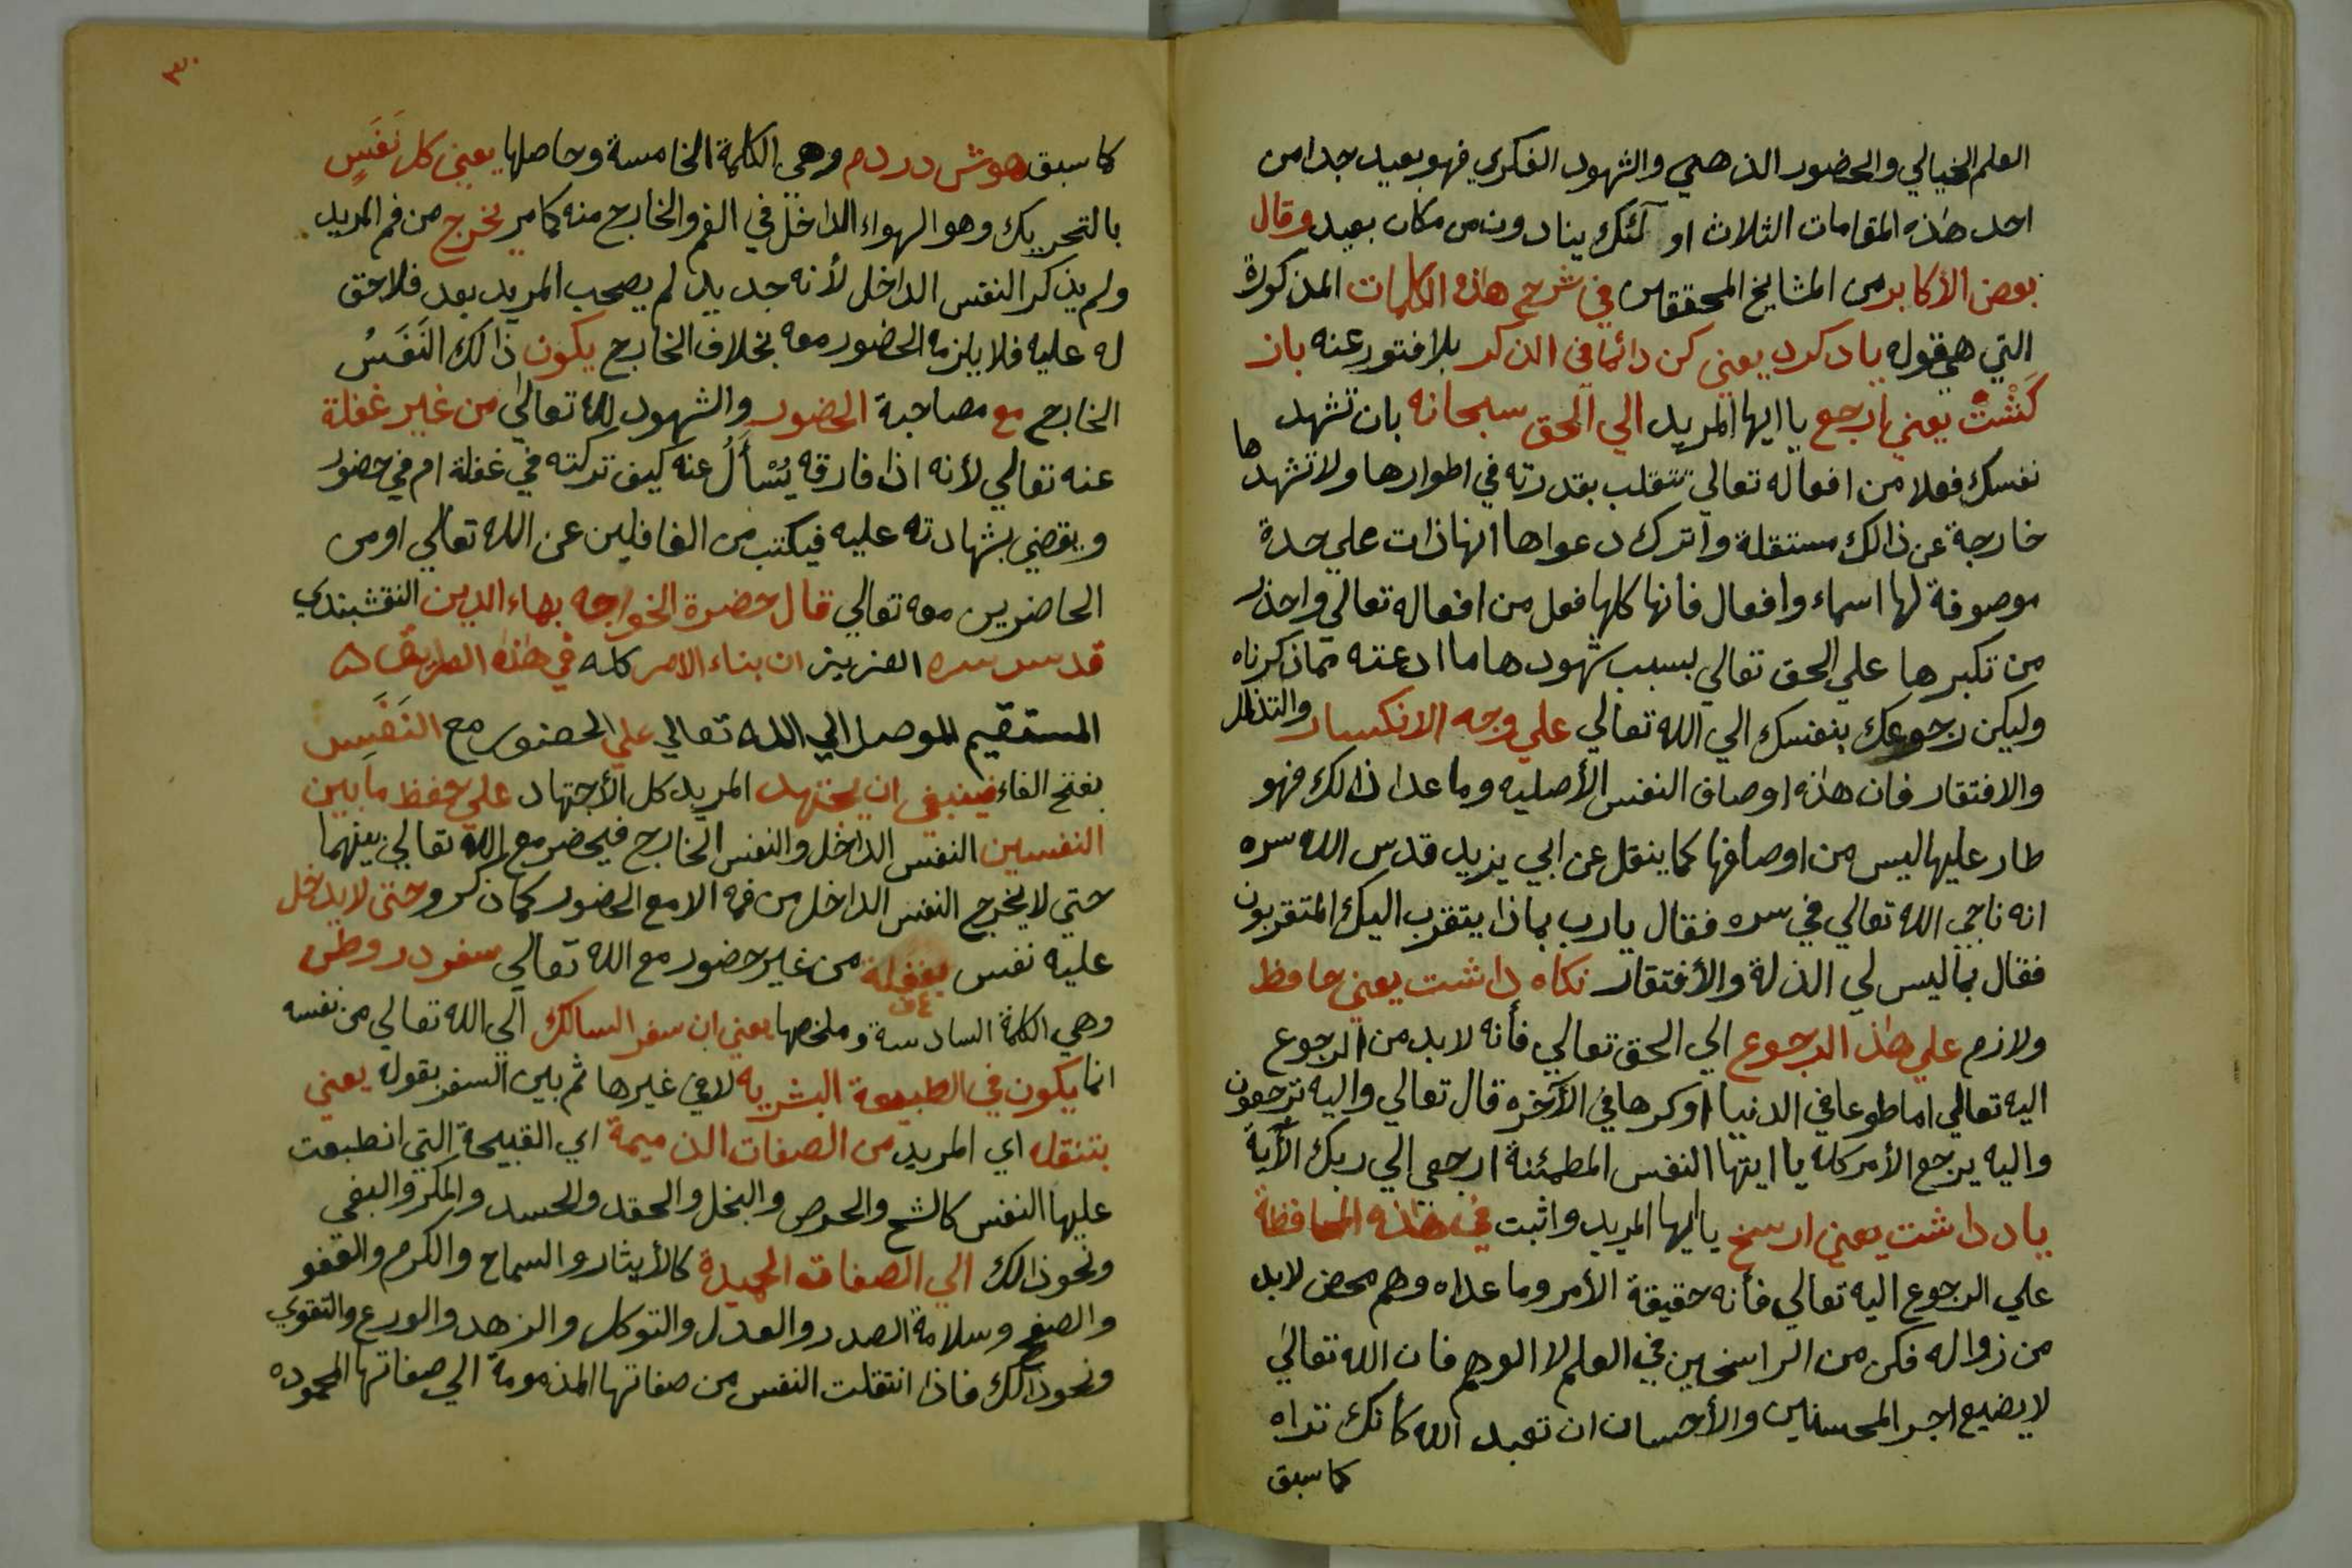 العلم الخيالي والحضور الذهني والشهود الفكري فهو بعيد جدا من
احد هذه المقامات الثلاث اولٓئك ينادون من مكان بعيد وقال
بعض الأكابر من المشايخ المحققين في شرح هذه الكلمات المذكورة
التي هي قوله ياد كرد يعني كن دائما في الذكر بلا فتور عنه باز
كَشْتْ يعني ارجع يا ايها المريد الي الحق سبحانه بان تشهد
نفسك فعلا من افعاله تعالي تتقلب بقدرته في اطوارها ولا تشهدها
خارجة عن ذالك مستقلة واترك دعواها انها ذات علي حدة
موصوفة لها اسماء وافعال فانها كلها فعل من افعاله تعالي واحذر
من تكبرها علي الحق تعالي بسبب شهودها ما ادعته مما ذكرناه
وليكن رجوعك بنفسك الي الله تعالي علي وجه الانكسار والتذلل
والافتقار فان هذه اوصاف النفس الأصليه وما عدا ذالك فهو
طار عليها ليس من اوصافها كما ينقل عن ابي يزيد قدس الله سره
انه ناجي الله تعالي في سره فقال يا رب بماذا يتقرب اليك المتقربون
فقال بما ليس لي الذلة والأفتقار نكاه داشت يعني حافظ
ولازم علي هذا الرجوع الي الحق تعالي فأنه لا بد من الرجوع
اليه تعالي اما طوعا في الدنيا اوكرها في الآخره قال تعالي واليه ترجعون
واليه يرجع الأمر كله يا ايتها النفس المطمئنة ارجعي الي ربك الآية
ياد داشت يعني ارسخ يا ايها المريد واثبت في هذه المحافظة
علي الرجوع اليه تعالي فأنه حقيقة الأمر وما عداه وهم محض لا بد
من زواله فكن من الراسخين في العلم لا الوهم فان الله تعالي
لا يضيع اجر المحسنين والأحسان ان تعبد الله كأنك تراه
كما سبق
٣٠
كما سبق هوش در دم وهي الكلمة الخامسة وحاصلها يعني كل نَفَسٍ
بالتحريك وهو الهواء الداخل في الفم والخارج منه كما مر يخرج من فم المريد
ولم يذكر النفس الداخل لأنه جديد لم يصحب المريد بعد فلا حق
له عليه فلا يلزمه الحضور معه بخلاف الخارج يكون ذالك النَفَسُ
الخارج مع مصاحبة الحضور والشهود لله تعالي من غير غفلة
عنه تعالي لأنه اذا فارقه يُسْأَلُ عنه كيف تركته في غفلة ام في حضور
ويقضي بشهادته عليه فيكتب من الغافلين عن الله تعالي او من
الحاضرين معه تعالي قال حضرة الخواجه بهاء الدين النقشبندي
قدس سره العزيز ان بناء الامر كله في هذه الطريق
المستقيم الموصل الي الله تعالي علي الحضور مع النَفَسِ
بفتح الفاء فينبغي ان يجتهد المريد كل الأجتهاد علي حفظ ما بين
النفسين النفس الداخل والنفس الخارج فيحضر مع الله تعالي بينهما
حتي لا يخرج النفس الداخل من فمه الا مع الحضور كما ذكر وحتى لا يدخل
عليه نفس بغفلة من غير حضور مع الله تعالي سفر در وطن
وهي الكلمة السادسة وملخصها يعني ان سفر السالك الي الله تعالي من نفسه
انما يكون في الطبيعة البشريه لا في غيرها ثم بين السفر بقوله يعني
بتنقله اي المريد من الصفات الذميمة اي القبيحة التي انطبعت
عليها النفس كالشح والحرص والبخل والحقد والحسد والمكر والبغي
ونحو ذالك الي الصفات الحميدة كالأيثار والسماح والكرم والعفو
والصفح وسلامة الصدر والعدل والتوكل والزهد والورع والتقوي
ونحو ذالك فاذا انتقلت النفس من صفاتها المذمومة الي صفاتها المحموده